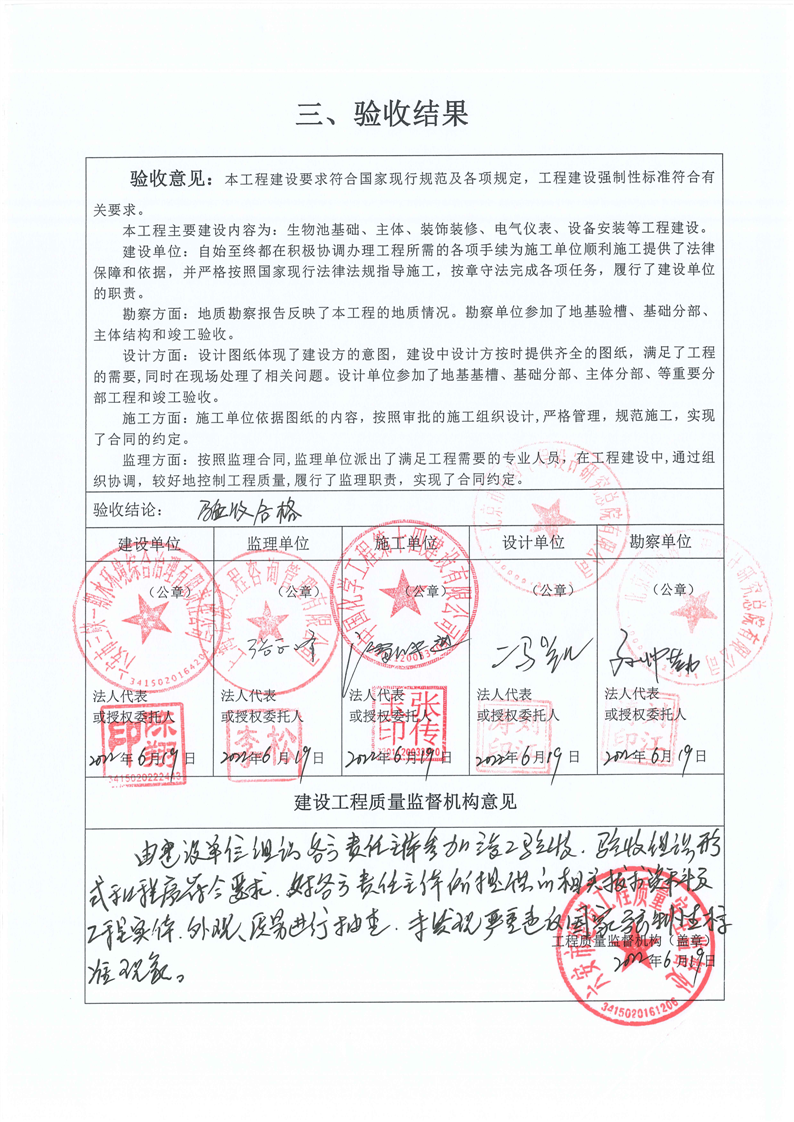 三、验收结果
验收意见：本工程建设要求符合国家现行规范及各项规定，工程建设强制性标准符合有
关要求。
本工程主要建设内容为：生物池基础、主体、装饰装修、电气仪表、设备安装等工程建设。
建设单位：自始至终都在积极协调办理工程所需的各项手续为施工单位顺利施工提供了法律
保障和依据，并严格按照国家现行法律法规指导施工，按章守法完成各项任务，履行了建设单位
的职责。
勘察方面：地质勘察报告反映了本工程的地质情况。勘察单位参加了地基验槽、基础分部、
主体结构和竣工验收。
设计方面：设计图纸体现了建设方的意图，建设中设计方按时提供齐全的图纸，满足了工程
的需要,同时在现场处理了相关问题。设计单位参加了地基基槽、基础分部、主体分部、等重要分
部工程和竣工验收。
施工方面：施工单位依据图纸的内容，按照审批的施工组织设计,严格管理，规范施工，实现
了合同的约定。
监理方面：按照监理合同,监理单位派出了满足工程需要的专业人员，在工程建设中,通过组
织协调，较好地控制工程质量,履行了监理职责，实现了合同约定。
验收结论： 验收合格
建设单位 监理单位 施工单位 设计单位 勘察单位
（公章） （公章） （公章） （公章） （公章）
六安市三峡一期水环境综合治理有限责任公司
3415020164202
中国化学工程第十四建设有限公司
法人代表 法人代表 法人代表 法人代表 法人代表
或授权委托人 或授权委托人 或授权委托人 或授权委托人 或授权委托人
陈翔印
3415020222443
李松
张传玉印
2022年6月19日 2022年6月19日 2022年6月19日 2022年6月19日 2022年6月19日
建设工程质量监督机构意见
由建设单位组织各方责任主体参加竣工验收．验收组织形
式和程序符合要求．对各方责任主体所提供的相关技术资料及
工程实体．外观、质量进行抽查．未发现严重违反国家强制性标
准现象。
工程质量监督机构（盖章）
2022年6月19日
3415020161206